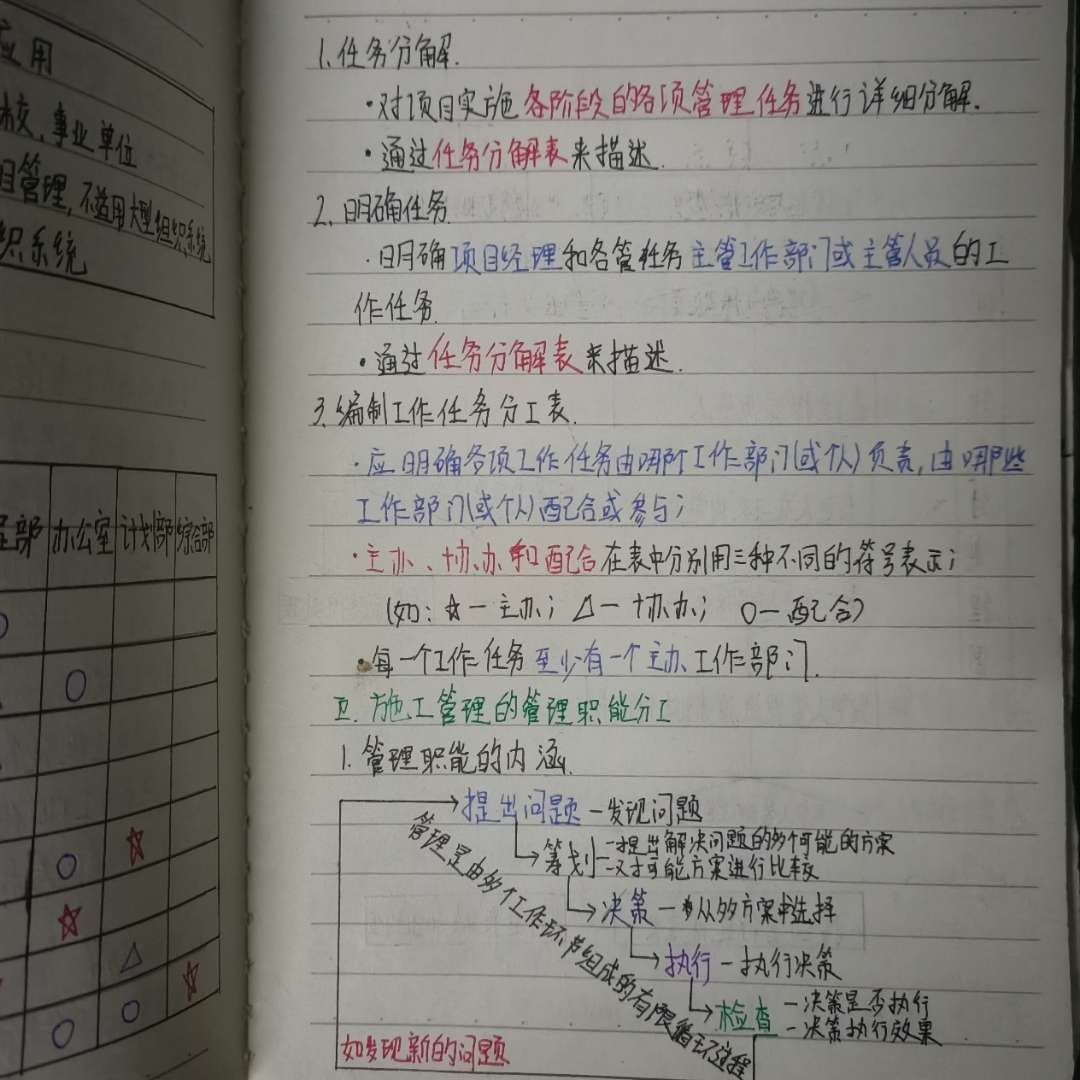 应用
校，事业单位
目管理，不适用大型组织系统
织系统
部 办公室 计划部 综合部
1.任务分解.
·对项目实施各阶段的各项管理任务进行详细分解.
·通过任务分解表来描述.
2.明确任务.
·明确项目经理和各管任务主管工作部门或主管人员的工
作任务.
·通过任务分解表来描述.
3.编制工作任务分工表.
·应明确各项工作任务由哪个工作部门(或个人)负责,由哪些
工作部门(或个人)配合或参与;
·主办、协办和配合在表中分别用三种不同的符号表示;
(如:☆—主办; △—协办; ○—配合)
·每一个工作任务至少有一个主办工作部门.
五.施工管理的管理职能分工
1.管理职能的内涵.
提出问题—发现问题
筹划—提出解决问题的多个可能的方案
—对可能方案进行比较
决策—从多方案中选择
执行—执行决策
检查—决策是否执行
—决策执行效果
管理是由多个工作环节组成的有限循环过程
如发现新的问题